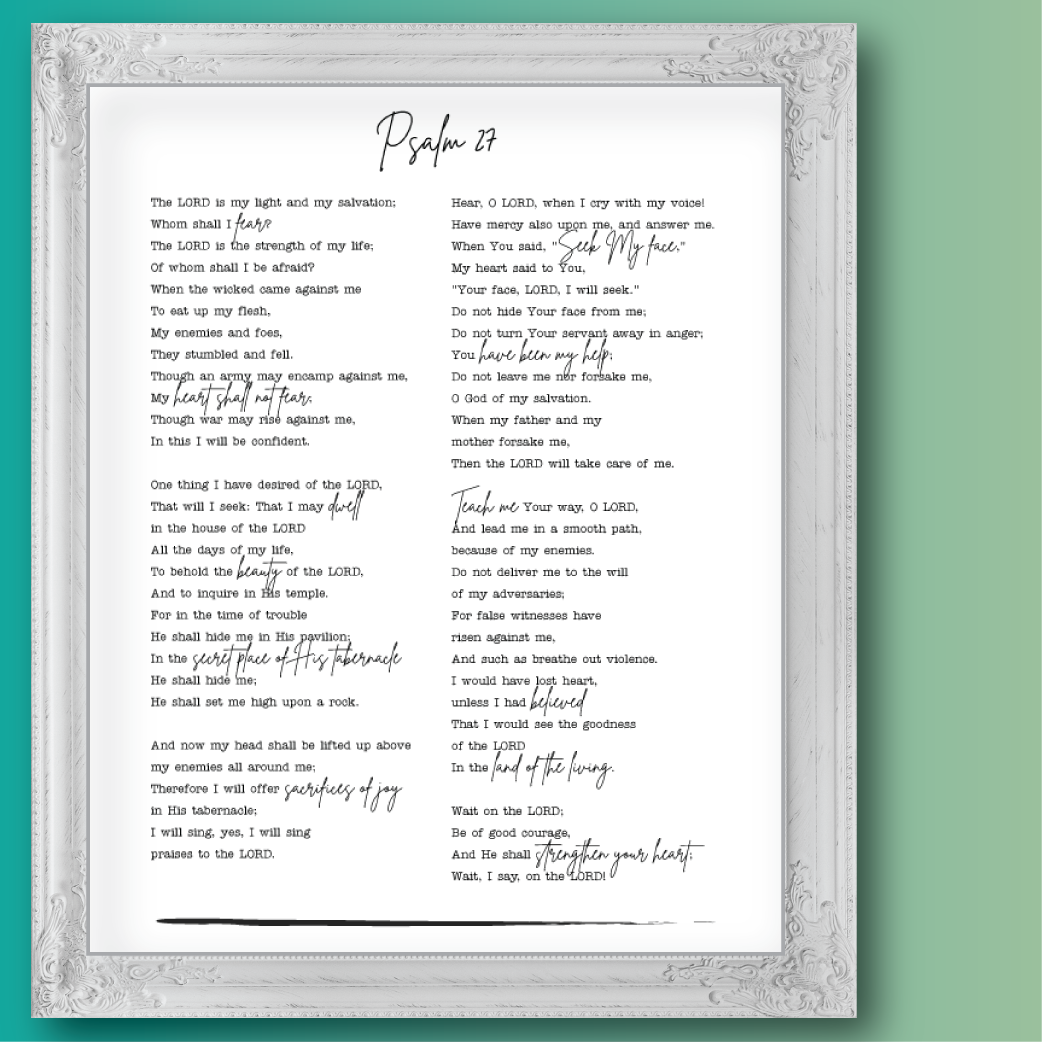 Psalm 27
The LORD is my light and my salvation;
Whom shall I fear?
The LORD is the strength of my life;
Of whom shall I be afraid?
When the wicked came against me
To eat up my flesh,
My enemies and foes,
They stumbled and fell.
Though an army may encamp against me,
My heart shall not fear;
Though war may rise against me,
In this I will be confident.
One thing I have desired of the LORD,
That will I seek: That I may dwell
in the house of the LORD
All the days of my life,
To behold the beauty of the LORD,
And to inquire in His temple.
For in the time of trouble
He shall hide me in His pavilion;
In the secret place of His tabernacle
He shall hide me;
He shall set me high upon a rock.
And now my head shall be lifted up above
my enemies all around me;
Therefore I will offer sacrifices of joy
in His tabernacle;
I will sing, yes, I will sing
praises to the LORD.
Hear, O LORD, when I cry with my voice!
Have mercy also upon me, and answer me.
When You said, "Seek My face,"
My heart said to You,
"Your face, LORD, I will seek."
Do not hide Your face from me;
Do not turn Your servant away in anger;
You have been my help;
Do not leave me nor forsake me,
O God of my salvation.
When my father and my
mother forsake me,
Then the LORD will take care of me.
Teach me Your way, O LORD,
And lead me in a smooth path,
because of my enemies.
Do not deliver me to the will
of my adversaries;
For false witnesses have
risen against me,
And such as breathe out violence.
I would have lost heart,
unless I had believed
That I would see the goodness
of the LORD
In the land of the living.
Wait on the LORD;
Be of good courage,
And He shall strengthen your heart;
Wait, I say, on the LORD!